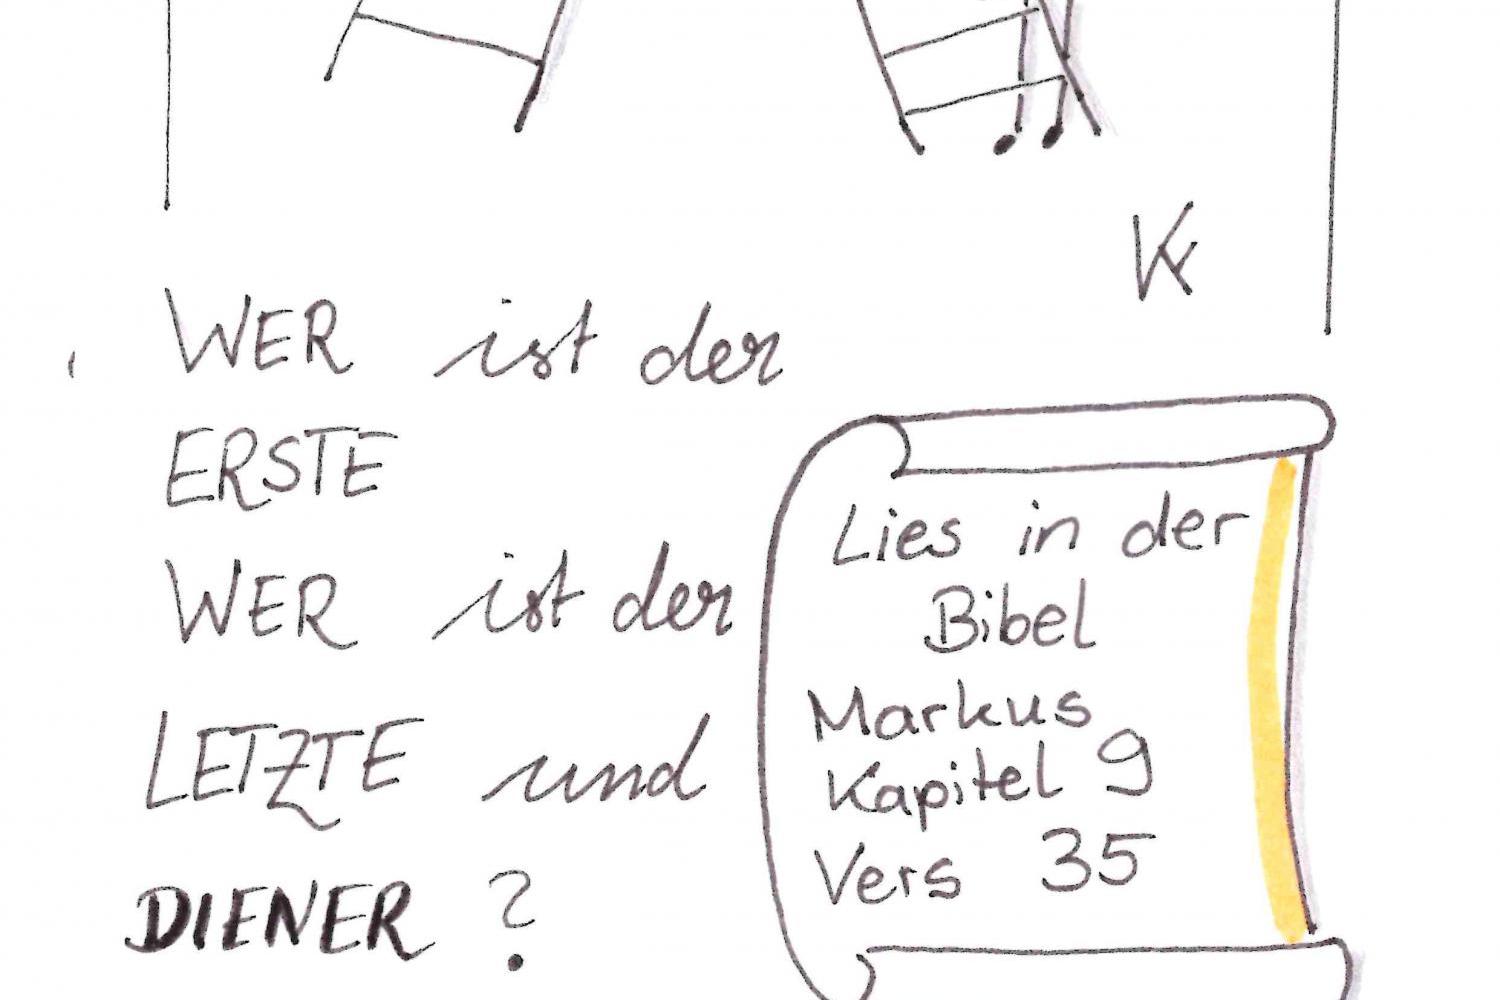 WER ist der
ERSTE
WER ist der
LETZTE und
DIENER ?
Lies in der
Bibel
Markus
Kapitel 9
Vers 35